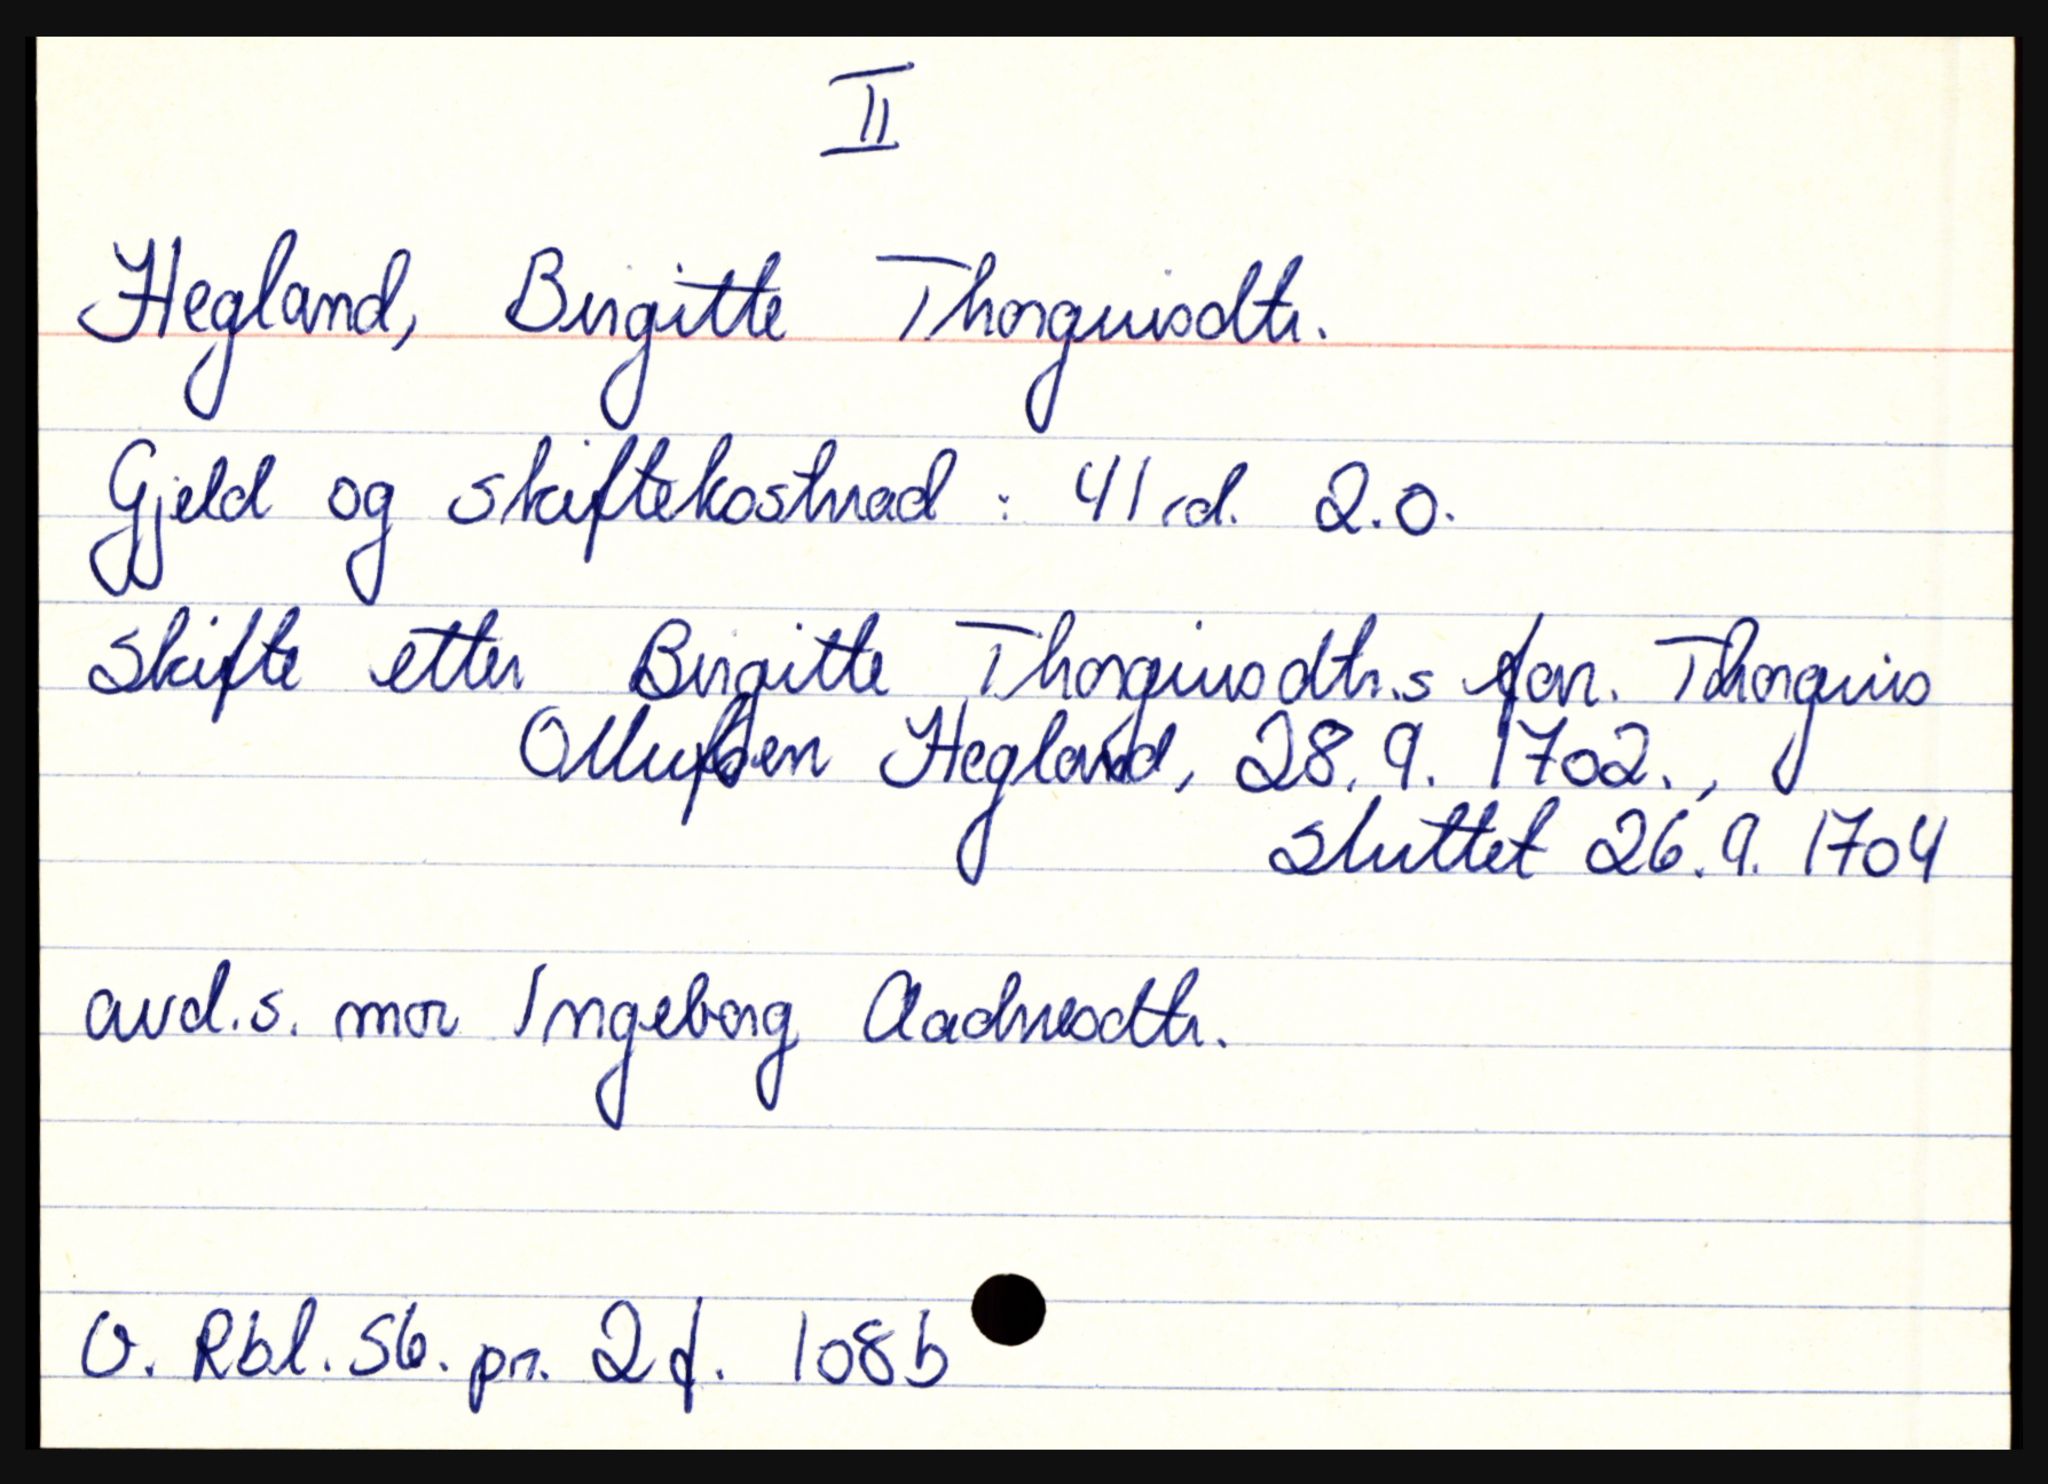 II
Hegland, Birgitte Thorguisdtr.
Gjeld og skiftekostnad : 41 rd. 2.0.
Skifte etter Birgitte Thorguisdtr.s far. Thorguis
Ollufsen Hegland, 28.9. 1702.,
sluttet 26.9. 1704
avd.s. mor Ingeborg Aadnesdtr.
V. Rbl. Sb. pr. 2 f. 108b